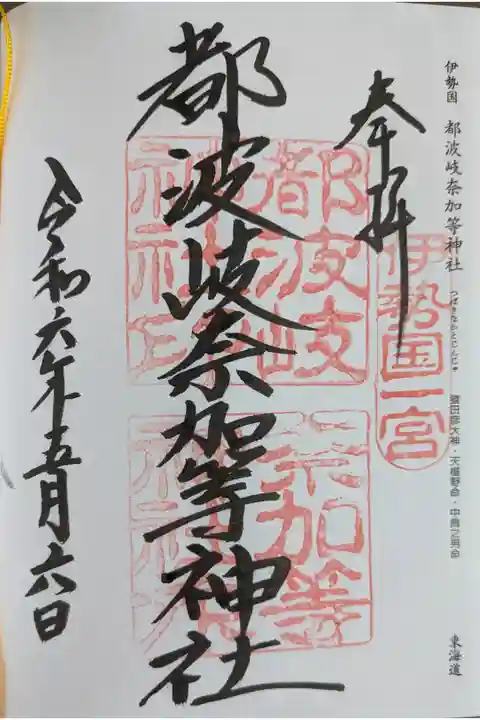 伊勢国 都波岐奈加等神社 つばきなかとじんじゃ 猿田彦大神・天椹野命・中筒之男命 東海道
奉拝
伊勢国一宮
都波岐奈加等神社
都波岐
神社印
奈加等
令和六年五月六日